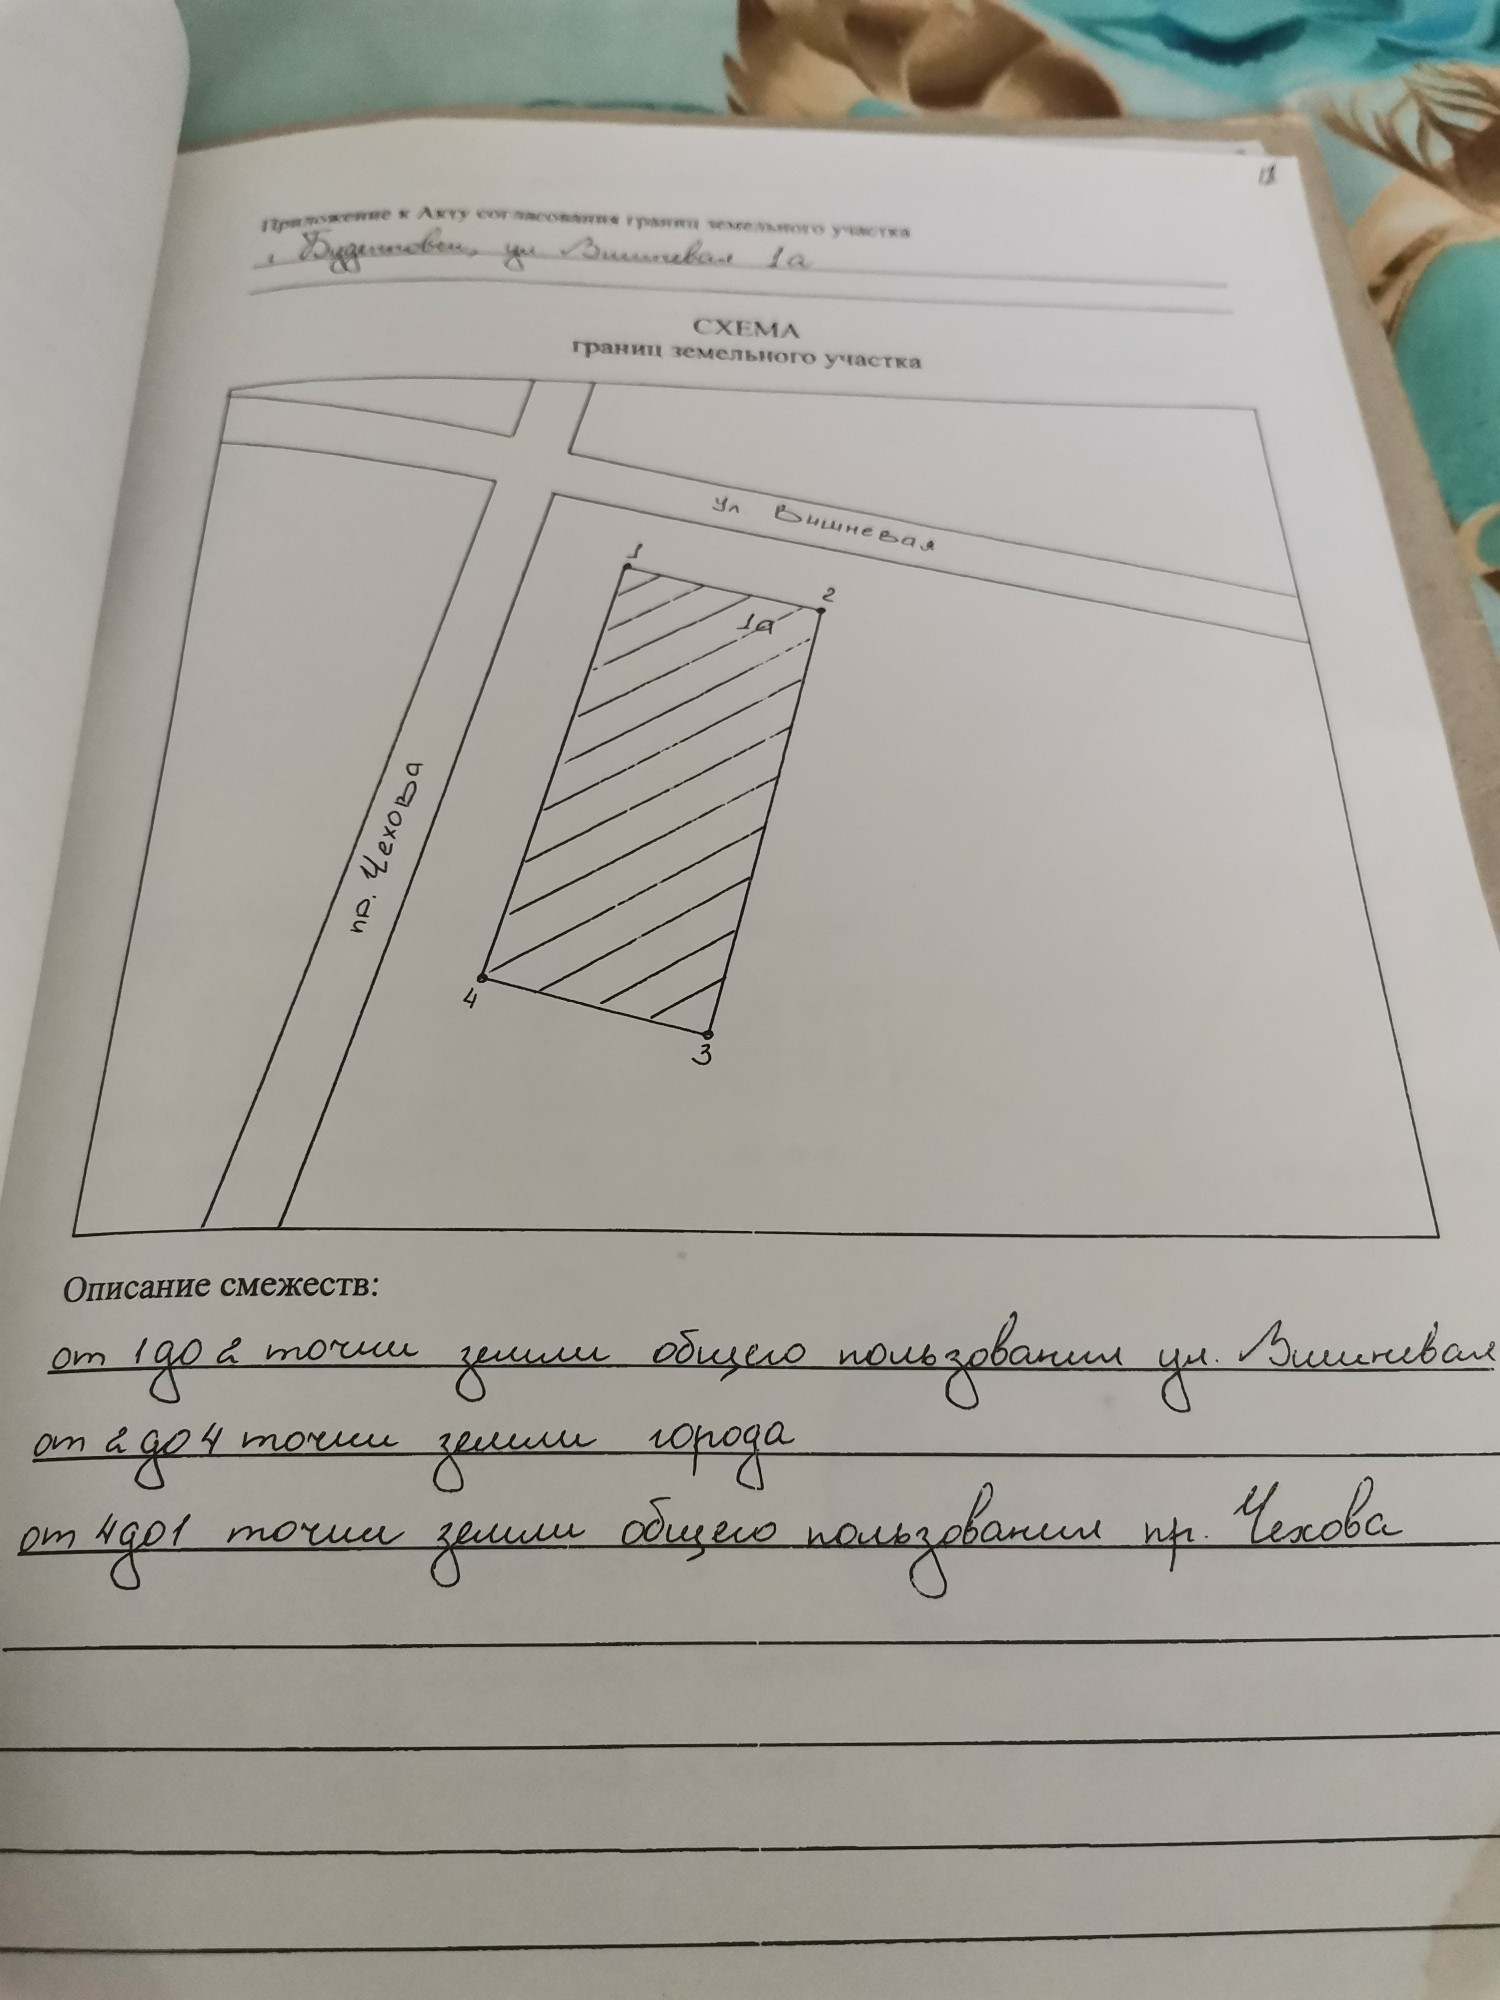 11
Приложение к Акту согласования границ земельного участка
г. Буденновск, ул Вишневая 1а
СХЕМА
границ земельного участка
ул Вишневая
1
2
1а
пр. Чехова
4
3
Описание смежеств:
от 1 до 2 точки земли общего пользования ул. Вишневая
от 2 до 4 точки земли города
от 4 до 1 точки земли общего пользования пр. Чехова